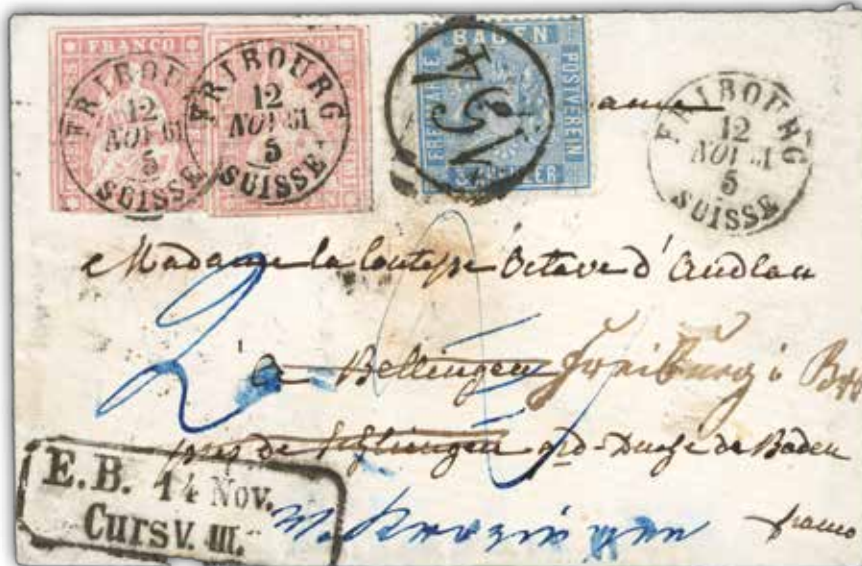 FRANCO
FRIBOURG
12
NOV 61
5
SUISSE
FRIBOURG
12
NOV 61
5
SUISSE
BADEN
FREIMARKE
POSTVEREIN
FRIBOURG
12
NOV 61
5
SUISSE
Madame la Comtesse Octave d'Andlau
à Bellingen Freiburg i
près de Schlingen grd-Duché de Baden
franco
2
E.B. 14 Nov.
Curs V. III.